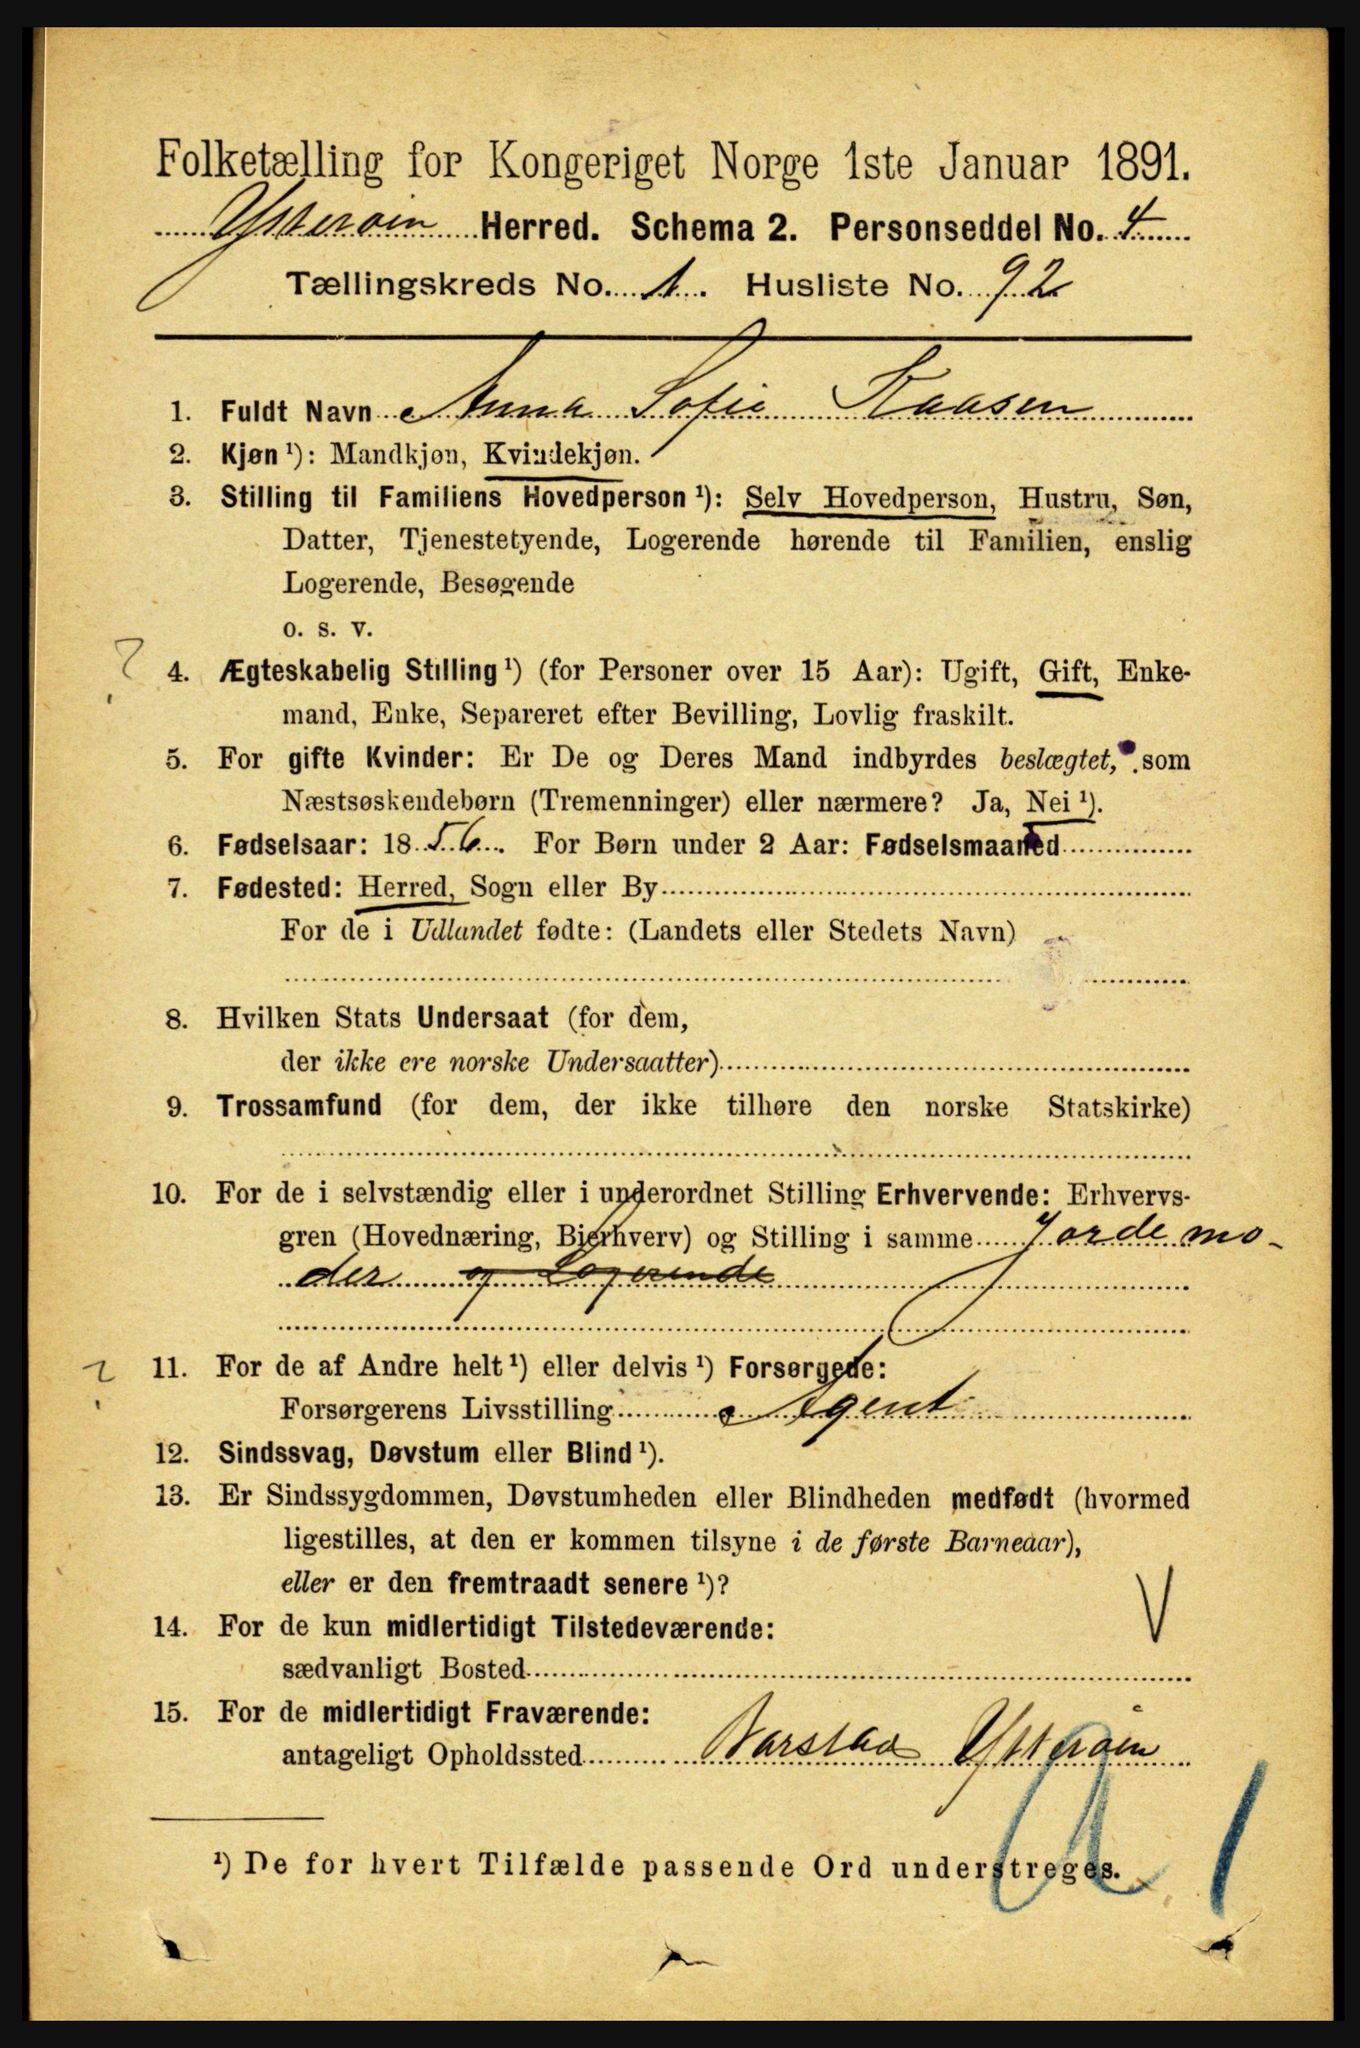 Folketælling for Kongeriget Norge 1ste Januar 1891.
Ytterøen Herred. Schema 2. Personseddel No. 4
Tællingskreds No. 1. Husliste No. 92
1. Fuldt Navn Anna Sofie Kaasen
2. Kjøn ¹): Mandkjøn, Kvindekjøn.
3. Stilling til Familiens Hovedperson ¹): Selv Hovedperson, Hustru, Søn,
Datter, Tjenestetyende, Logerende hørende til Familien, enslig
Logerende, Besøgende
o. s. v.
?
4. Ægteskabelig Stilling ¹) (for Personer over 15 Aar): Ugift, Gift, Enke-
mand, Enke, Separeret efter Bevilling, Lovlig fraskilt.
5. For gifte Kvinder: Er De og Deres Mand indbyrdes beslægtet, som
Næstsøskendebørn (Tremenninger) eller nærmere? Ja, Nei ¹).
6. Fødselsaar: 1856. For Børn under 2 Aar: Fødselsmaaned
7. Fødested: Herred, Sogn eller By
For de i Udlandet fødte: (Landets eller Stedets Navn)
8. Hvilken Stats Undersaat (for dem,
der ikke ere norske Undersaatter)
9. Trossamfund (for dem, der ikke tilhøre den norske Statskirke)
10. For de i selvstændig eller i underordnet Stilling Erhvervende: Erhvervs-
gren (Hovednæring, Bierhverv) og Stilling i samme Jordemo-
der og Logerende
?
11. For de af Andre helt ¹) eller delvis ¹) Forsørgede:
Forsørgerens Livsstilling Agent
12. Sindssvag, Døvstum eller Blind ¹).
13. Er Sindssygdommen, Døvstumheden eller Blindheden medfødt (hvormed
ligestilles, at den er kommen tilsyne i de første Barneaar),
eller er den fremtraadt senere ¹)?
V
14. For de kun midlertidigt Tilstedeværende:
sædvanligt Bosted
15. For de midlertidigt Fraværende:
antageligt Opholdssted Ytterøen
¹) De for hvert Tilfælde passende Ord understreges.